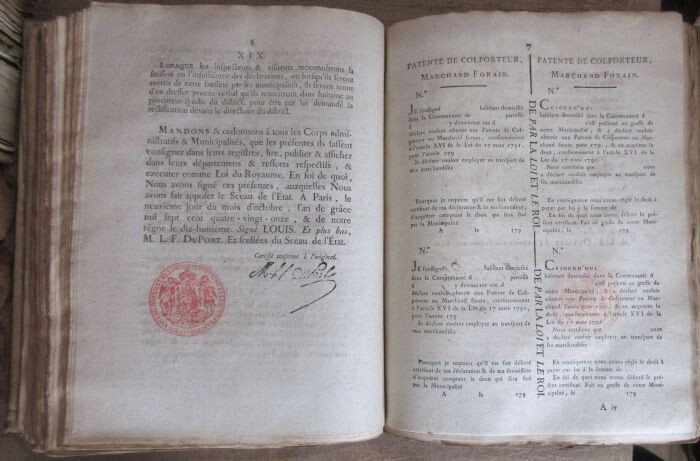 6
XIX.
LORSQUE les inspecteurs & visiteurs reconnoîtront la
fausseté ou l'insuffisance des déclarations, ou lorsqu'ils seront
avertis de cette fausseté par les municipalités, ils seront tenus
d'en dresser procès verbal qu'ils remettront dans huitaine au
procureur-syndic du district, pour être par lui demandé la
rectification devant le directoire du district.
MANDONS & ordonnons à tous les Corps admi-
nistratifs & Municipalités, que les présentes ils fassent
consigner dans leurs registres, lire, publier & afficher
dans leurs départemens & ressorts respectifs, &
exécuter comme Loi du Royaume. En foi de quoi,
Nous avons signé ces présentes, auxquelles Nous
avons fait apposer le Sceau de l'État. A Paris, le
neuvième jour du mois d'octobre, l'an de grâce
mil sept cent quatre-vingt-onze, & de notre
règne le dix-huitième. Signé LOUIS. Et plus bas,
M. L. F. DUPORT. Et scellées du Sceau de l'État.
Certifié conforme à l'original.
7
PATENTE DE COLPORTEUR,
MARCHAND FORAIN.
N.º
JE soussigné habitant domicilié
dans la Communauté de paroisse
d y demeurant rue d
déclare vouloir obtenir une Patente de Colporteur
ou Marchand forain, conformément
à l'article XVI de la Loi du 17 mars 1791.
Je déclare vouloir employer au transport de
mes marchandises
Pourquoi je requiers qu'il me soit délivré
certificat de ma déclaration & de ma soumission
d'acquitter comptant le droit qui sera fixé
par la Municipalité
A le 179
N.º
JE soussigné habitant domicilié
dans la Communauté de paroisse
d y demeurant rue d
déclare vouloir obtenir une Patente de Colpor-
teur ou Marchand forain, conformément
à l'article XVI de la Loi du 17 mars 1791,
pour l'année 179
Je déclare vouloir employer au transport de
mes marchandises
Pourquoi je requiers qu'il me soit délivré
certificat de ma déclaration & de ma soumission
d'acquitter comptant le droit qui sera fixé
par la Municipalité
A le 179
DE PAR LA LOI ET LE ROI.
DE PAR LA LOI ET LE ROI.
PATENTE DE COLPORTEUR,
MARCHAND FORAIN.
N.º
CEJOURD'HUI
habitant domicilié dans la Communauté d
s'est présenté au greffe de
notre Municipalité, & a déclaré vouloir
obtenir une Patente de Colporteur ou Marchand
forain pour 179 , & en acquitter le
droit, conformément à l'article XVI de la
Loi du 17 mars 1791.
Nous certifions que nous
a déclaré vouloir employer au transport de
ses marchandises
En conséquence nous avons réglé le droit à
payer par lui à la somme de
En foi de quoi nous avons délivré le pré-
sent certificat. Fait au greffe de notre Muni-
cipalité, le 179
N.º
CEJOURD'HUI
habitant domicilié dans la Communauté d
s'est présenté au greffe de
notre Municipalité, & a déclaré vouloir
obtenir une Patente de Colporteur ou Mar-
chand forain pour 179 , & en acquitter le
droit, conformément à l'article XVI de la
Loi du 17 mars 1791
Nous certifions que nous
a déclaré vouloir employer au transport de
ses marchandises
En conséquence nous avons réglé le droit à
payer par lui à la somme de
En foi de quoi nous avons délivré le pré-
sent certificat. Fait au greffe de notre Muni-
cipalité, le 179
A iv